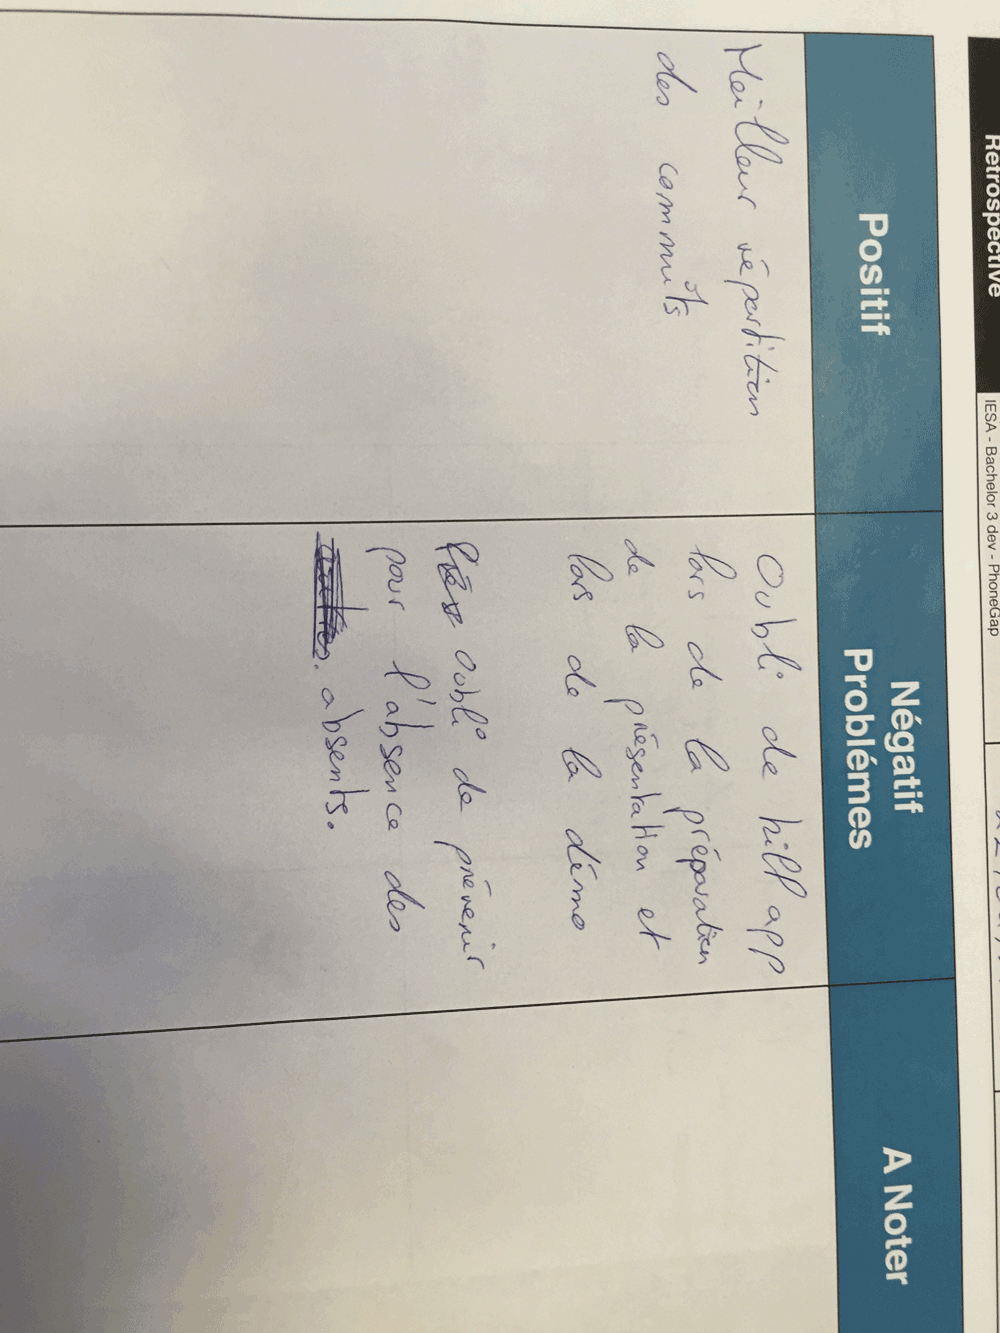 Rétrospective
IESA - Bachelor 3 dev - PhoneGap
Positif
Négatif
Problémes
A Noter
Meilleur répartition
des commits
Oubli de kill app
lors de la préparation
de la présentation et
lors de la démo
oubli de prévenir
pour l'absence des
absents.